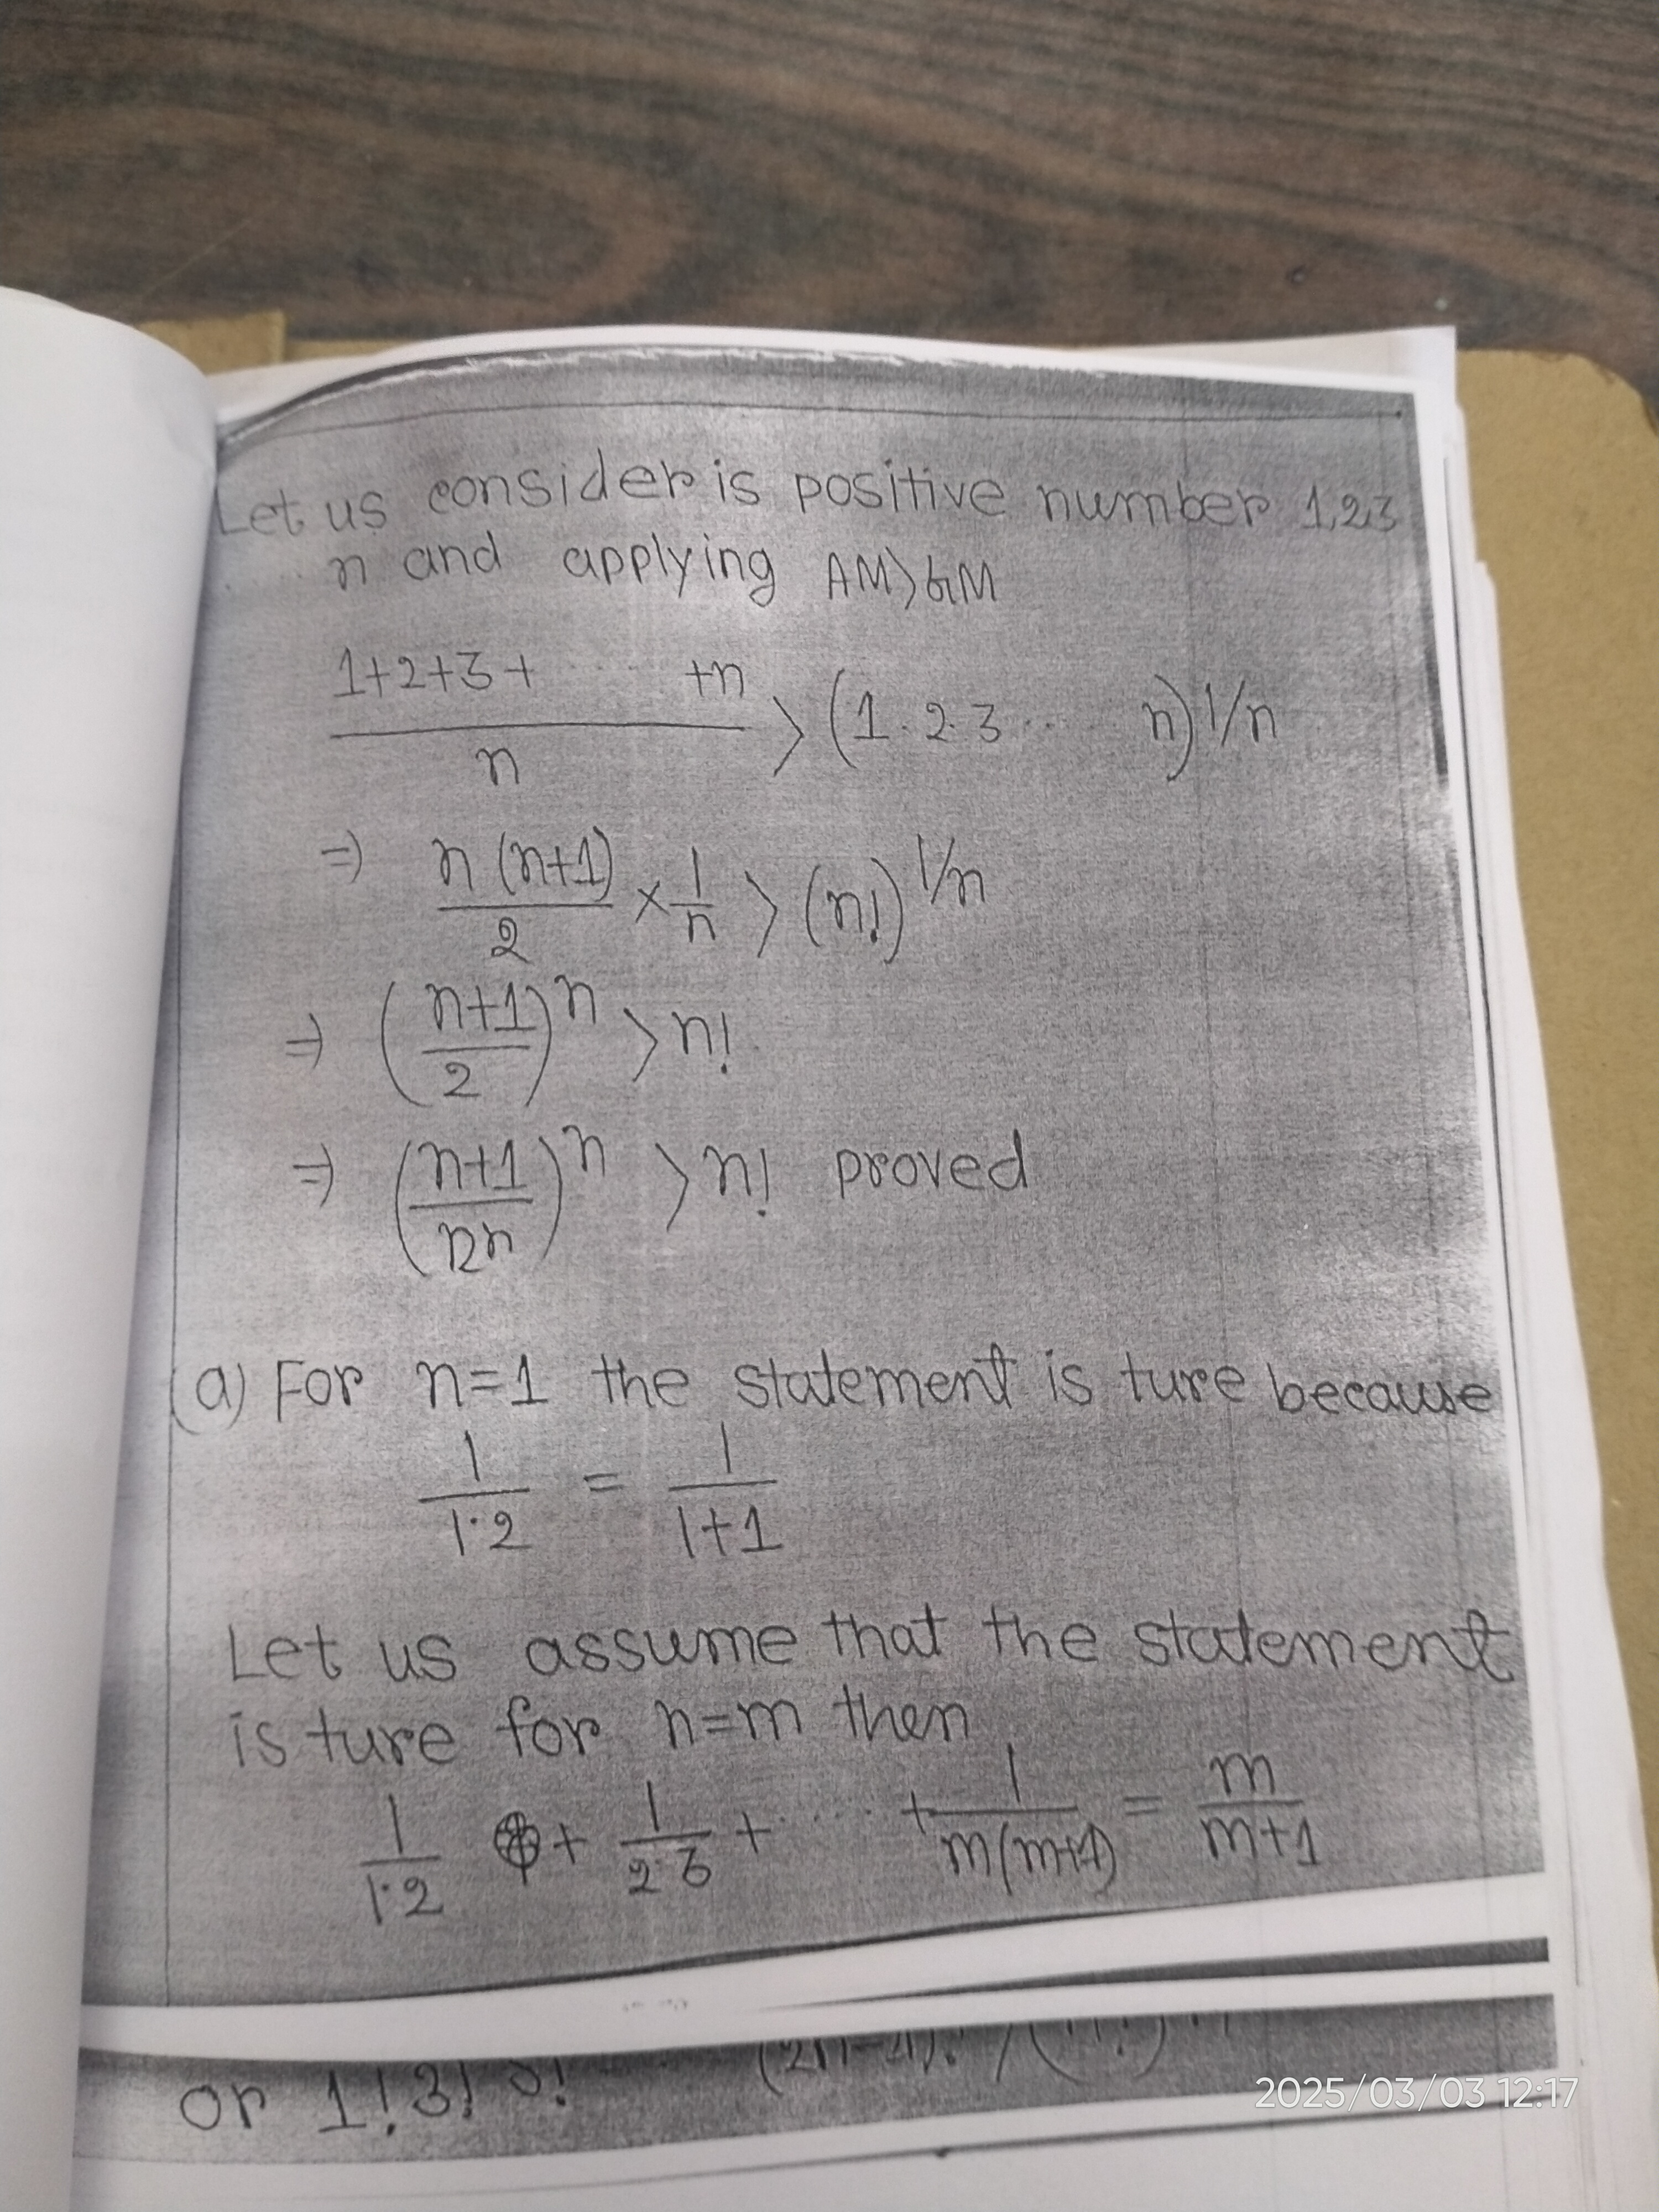 Let us consider is positive number 1,2,3
..... n and applying AM>GM
1+2+3+ ..... +n / n > (1.2.3 .... n)1/n
=> n(n+1)/2 × 1/n > (n!)1/n
=> (n+1/2)n > n!
=> (n+1/2n)n > n! proved
(a) For n=1 the statement is ture because
1/1.2 = 1/1+1
Let us assume that the statement
is ture for n=m then
1/1.2 + 1/2.3 + ..... + 1/m(m+1) = m/m+1
or 1! 3! 5!
2025/03/03 12:17